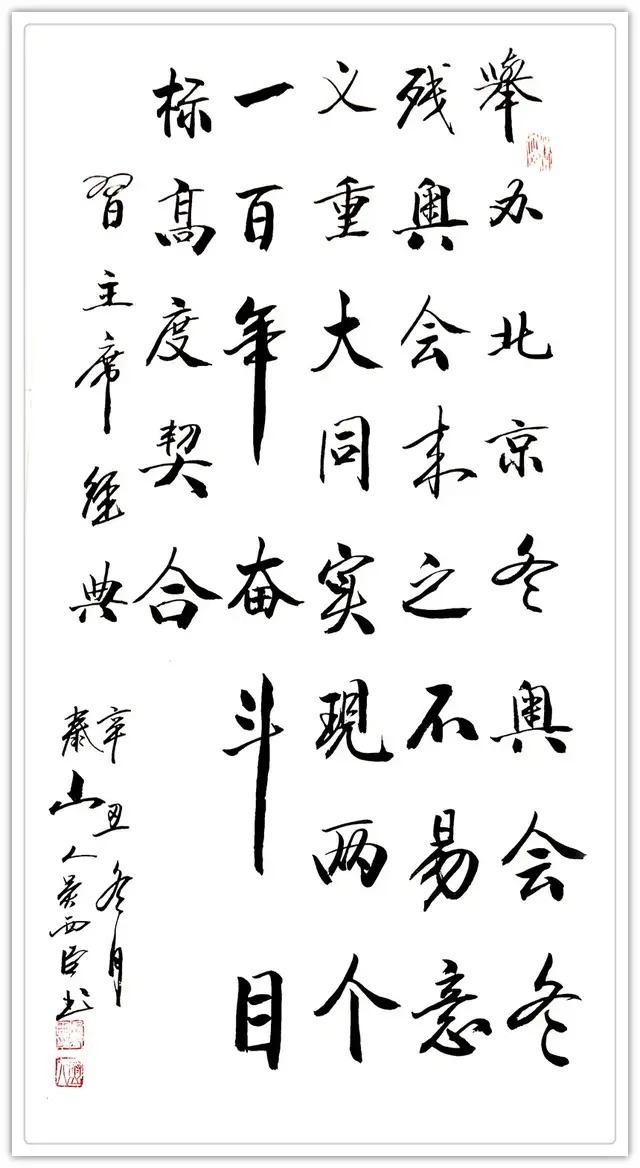 舉办北京冬奥会冬
残奥会来之不易意
义重大同实現两个
一百年奋斗目
标髙度契合
習主席經典
辛丑冬月
泰山人吴西臣书